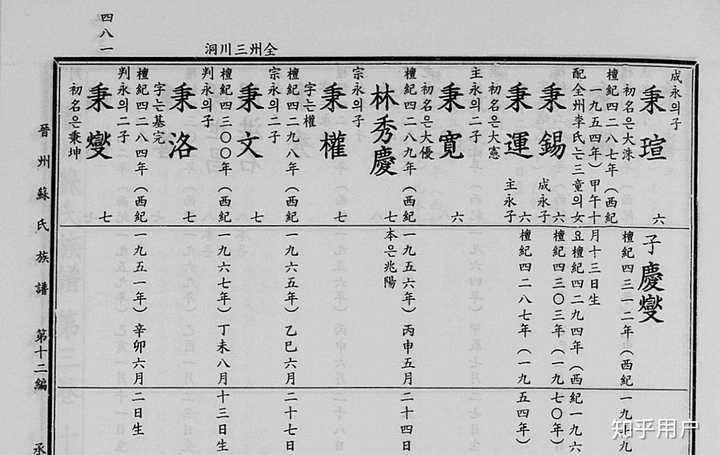 四八一
全州三川洞
成永의子
秉瑄 六
子慶燮
初名은大洙
檀紀四三一二年(西紀一九七九
檀紀四二八七年(西紀
一九五四年)甲午十月十三日生
配全州李氏는三童의女요檀紀四二九四年(西紀一九六
秉錫 成永子 六 檀紀四三〇三年(一九七〇年)
秉運 主永子 六 檀紀四二八七年(一九五四年)
初名은大憲
主永의子
秉寬 六
初名은大優
檀紀四二八九年(西紀一九五六年)丙申五月二十四日
林秀慶 七 本은兆陽
宗永의子
秉權 七
字는權
檀紀四二九八年(西紀一九六五年)乙巳六月二十七日
宗永의二子
秉文 七
檀紀四三〇〇年(西紀一九六七年)丁未八月十三日生
判永의子
秉洛 七
字는基完
檀紀四二八四年(西紀一九五一年)辛卯六月二日生
判永의二子
秉燮 七
初名은秉坤
晉州蘇氏族譜 第十二編 承
知乎用户